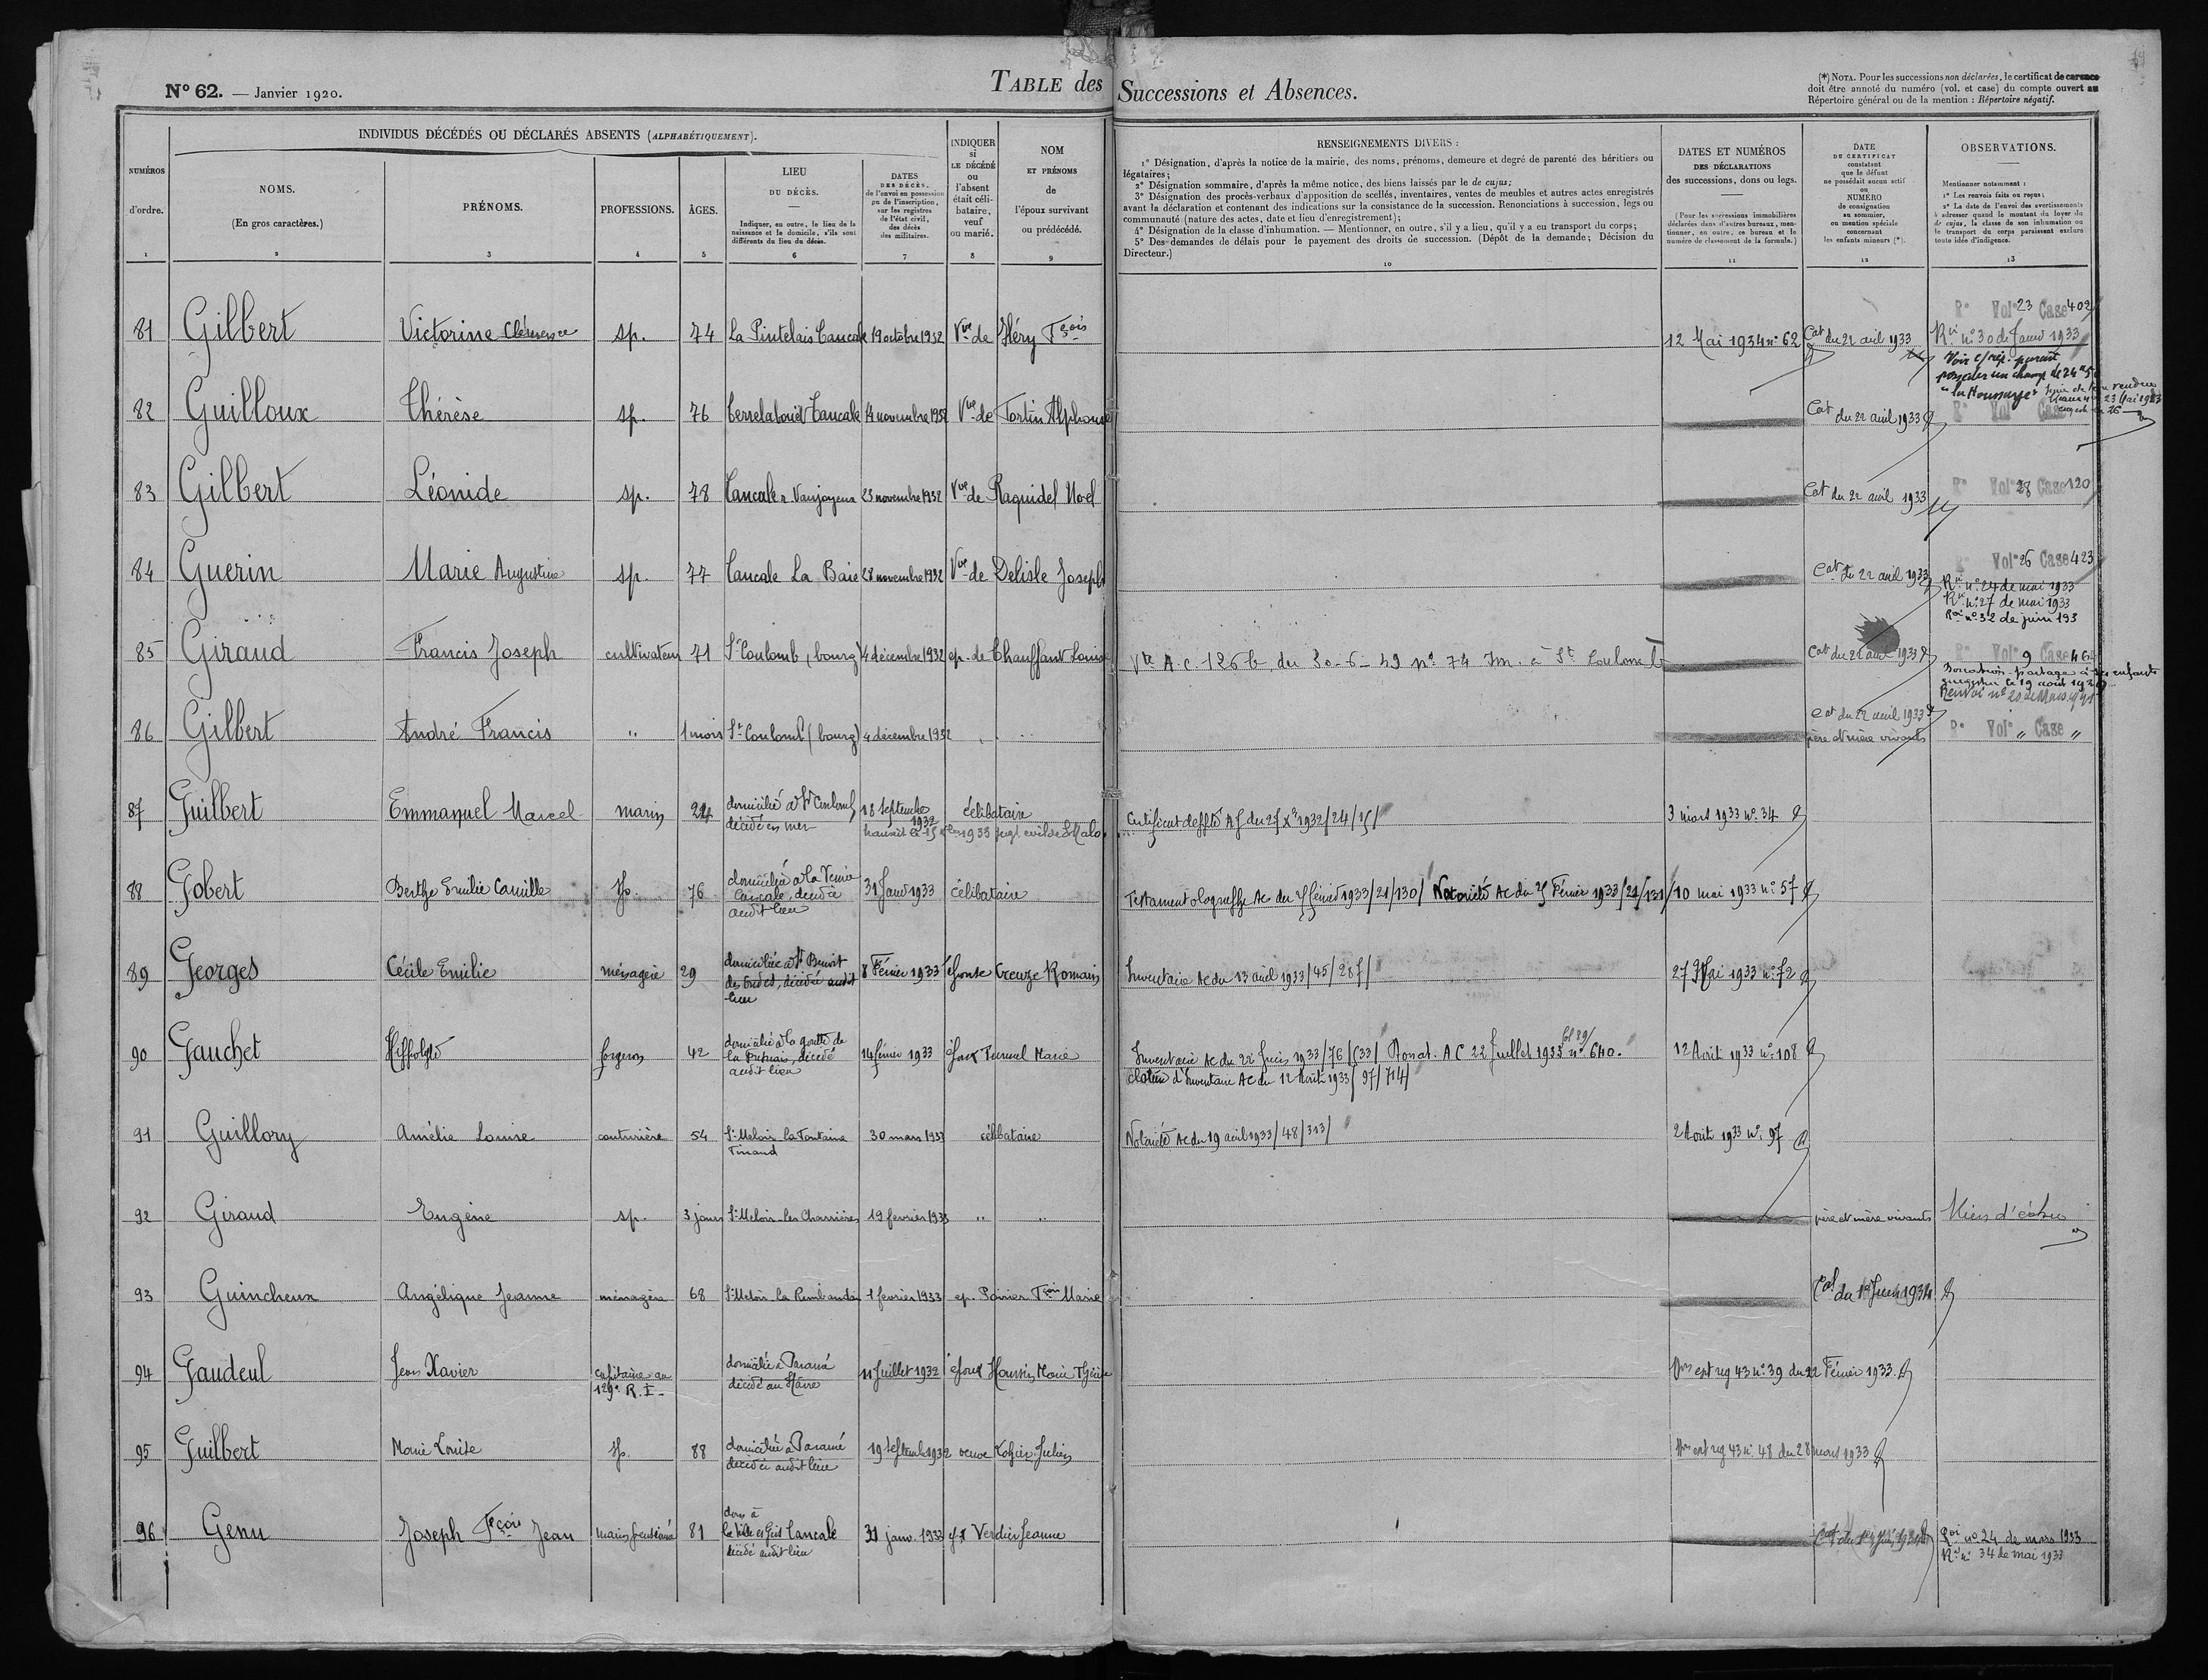 N° 62. — Janvier 1920.
TABLE des Successions et Absences.
(*) NOTA. Pour les successions non déclarées, le certificat de carence
doit être annoté du numéro (vol. et case) du compte ouvert au
Répertoire général ou de la mention : Répertoire négatif.
INDIVIDUS DÉCÉDÉS OU DÉCLARÉS ABSENTS (ALPHABÉTIQUEMENT).
NUMÉROS
d'ordre.
1
NOMS.
(En gros caractères.)
2
PRÉNOMS.
3
PROFESSIONS.
4
ÂGES.
5
LIEU
DU DÉCÈS.
Indiquer, en outre, le lieu de la
naissance et le domicile, s'ils sont
différents du lieu du décès.
6
DATES
DES DÉCÈS,
de l'envoi en possession
ou de l'inscription,
sur les registres
de l'état civil,
des décès
des militaires.
7
INDIQUER
si
LE DÉCÉDÉ
ou
l'absent
était céli-
bataire,
veuf
ou marié.
8
NOM
ET PRÉNOMS
de
l'époux survivant
ou prédécédé.
9
RENSEIGNEMENTS DIVERS :
1° Désignation, d'après la notice de la mairie, des noms, prénoms, demeure et degré de parenté des héritiers ou
légataires;
2° Désignation sommaire, d'après la même notice, des biens laissés par le de cujus;
3° Désignation des procès-verbaux d'apposition de scellés, inventaires, ventes de meubles et autres actes enregistrés
avant la déclaration et contenant des indications sur la consistance de la succession. Renonciations à succession, legs ou
communauté (nature des actes, date et lieu d'enregistrement);
4° Désignation de la classe d'inhumation. — Mentionner, en outre, s'il y a lieu, qu'il y a eu transport du corps;
5° Des demandes de délais pour le payement des droits de succession. (Dépôt de la demande; Décision du
Directeur.)
10
DATES ET NUMÉROS
DES DÉCLARATIONS
des successions, dons ou legs.
(Pour les successions immobilières
déclarées dans d'autres bureaux, men-
tionner, en outre, ce bureau et le
numéro de classement de la formule.)
11
DATE
DU CERTIFICAT
constatant
que le défunt
ne possédait aucun actif
ou
NUMÉRO
de consignation
au sommier,
ou mention spéciale
concernant
les enfants mineurs (*).
12
OBSERVATIONS.
Mentionner notamment :
1° Les renvois faits ou reçus;
2° La date de l'envoi des avertissements
à adresser quand le montant du loyer du
de cujus, la classe de son inhumation ou
le transport du corps paraissent exclure
toute idée d'indigence.
13
81 Gilbert Victorine Clémence sp. 74 La Pintelais Cancale 19 octobre 1932 Vve de Héry Fçois 12 Mai 1934 n° 62 Cat du 22 avril 1933 R° Vol° 23 Case 402
Rvi n° 30 de Janv 1933
Voir c/rép. parait
posséder un champ de 24
"la Houssaye"
82 Guilloux Thérèse sp. 76 Terrelabouët Cancale 14 novembre 1932 Vve de Fortin Alphonse Cat du 22 avril 1933 R° Vol Case
83 Gilbert Léonide sp. 78 Cancale r. Vaujoyeux 23 novembre 1932 Vve de Raquidel Noel Cat du 22 avril 1933 R° Vol° 28 Case 120
84 Guerin Marie Augustine sp. 77 Cancale La Baie 28 novembre 1932 Vve de Delisle Joseph Cat du 22 avril 1933 R° Vol° 26 Case 423
Rvi n° 24 de mai 1933
Rvi n° 27 de mai 1933
Rvi n° 32 de juin 193
85 Giraud Francis Joseph cultivateur 71 St Coulomb (bourg) 4 décembre 1932 ép. de Chauffaut Louise Vte A.C. 126 b. du 30-6-49 n° 74 Im. à St Coulomb Cat du 22 avril 1933 R° Vol° 9 Case 464
Donation-partage à ses enfants
Renvoi n° 20 de Mars
86 Gilbert André Francis " 1 mois St Coulomb (bourg) 4 décembre 1932 Cat du 22 avril 1933
père et mère vivants R° Vol° " Case "
87 Guilbert Emmanuel Marcel marin 24 domicilié à St Coulomb
décédé en mer 18 septembre
1932 célibataire Certificat de ppté 3 mars 1933 n° 34
88 Gobert Berthe Emilie Camille sp. 76 domiciliée à la
Cancale, décédée
audit lieu 31 Janv 1933 célibataire Testament olographe Ac du 7 février 1933/21/130/ Notoriété Ac du 7 Février 1933/21/131/ 10 mai 1933 n° 57
89 Georges Cécile Emilie ménagère 29 domiciliée à St Benoit
des Ondes, décédée audit
lieu 8 Février 1933 épouse Creuze Romain Inventaire Ac du 13 avril 1933/45/287/ 27 Mai 1933 n° 72
90 Gauchet Hippolyte forgeron 42 domicilié à la goutte de
la Fresnais, décédé
audit lieu 14 février 1933 époux Marie Inventaire Ac du 22 Juin 1933/76/533/ A C 22 Juillet 1933 n° 640. 12 Août 1933 n° 108
cloture d'Inventaire AC du 12 Août 1933/97/714/
91 Guillory Amélie Louise couturière 54 St Méloir la Fontaine
Tinaud 30 mars 1933 célibataire Notoriété Ac du 19 avril 1933/48/313/ 2 Août 1933 n° 97
92 Giraud Eugène sp. 3 jours St Méloir les Charrières 19 fevrier 1933 " " père et mère vivants Rien d'échu
93 Guincheux Angélique Jeanne ménagère 68 St Méloir la 1 fevrier 1933 ep. Poirier Fçois Marie Cat du 1er Juin 1934
94 Gaudeul Jean Xavier capitaine au
129e R.I. domicilié à Paramé
décédé au Hâvre 11 Juillet 1932 époux Marie Thérèse ext reg 43 n° 39 du 22 Février 1933.
95 Guilbert Marie Louise sp. 88 domiciliée à Paramé
décédée audit lieu 19 septembre 1932 veuve Julien ext reg 43 n° 48 du 28 mars 1933
96 Genu Joseph Fçois Jean marin pensionné 81 dom à
la Ville es Gris Cancale
décédé audit lieu 31 janv. 1933 Verdier Jeanne Rvi n° 24 de mars 1933
Rvi n° 34 de mai 1933